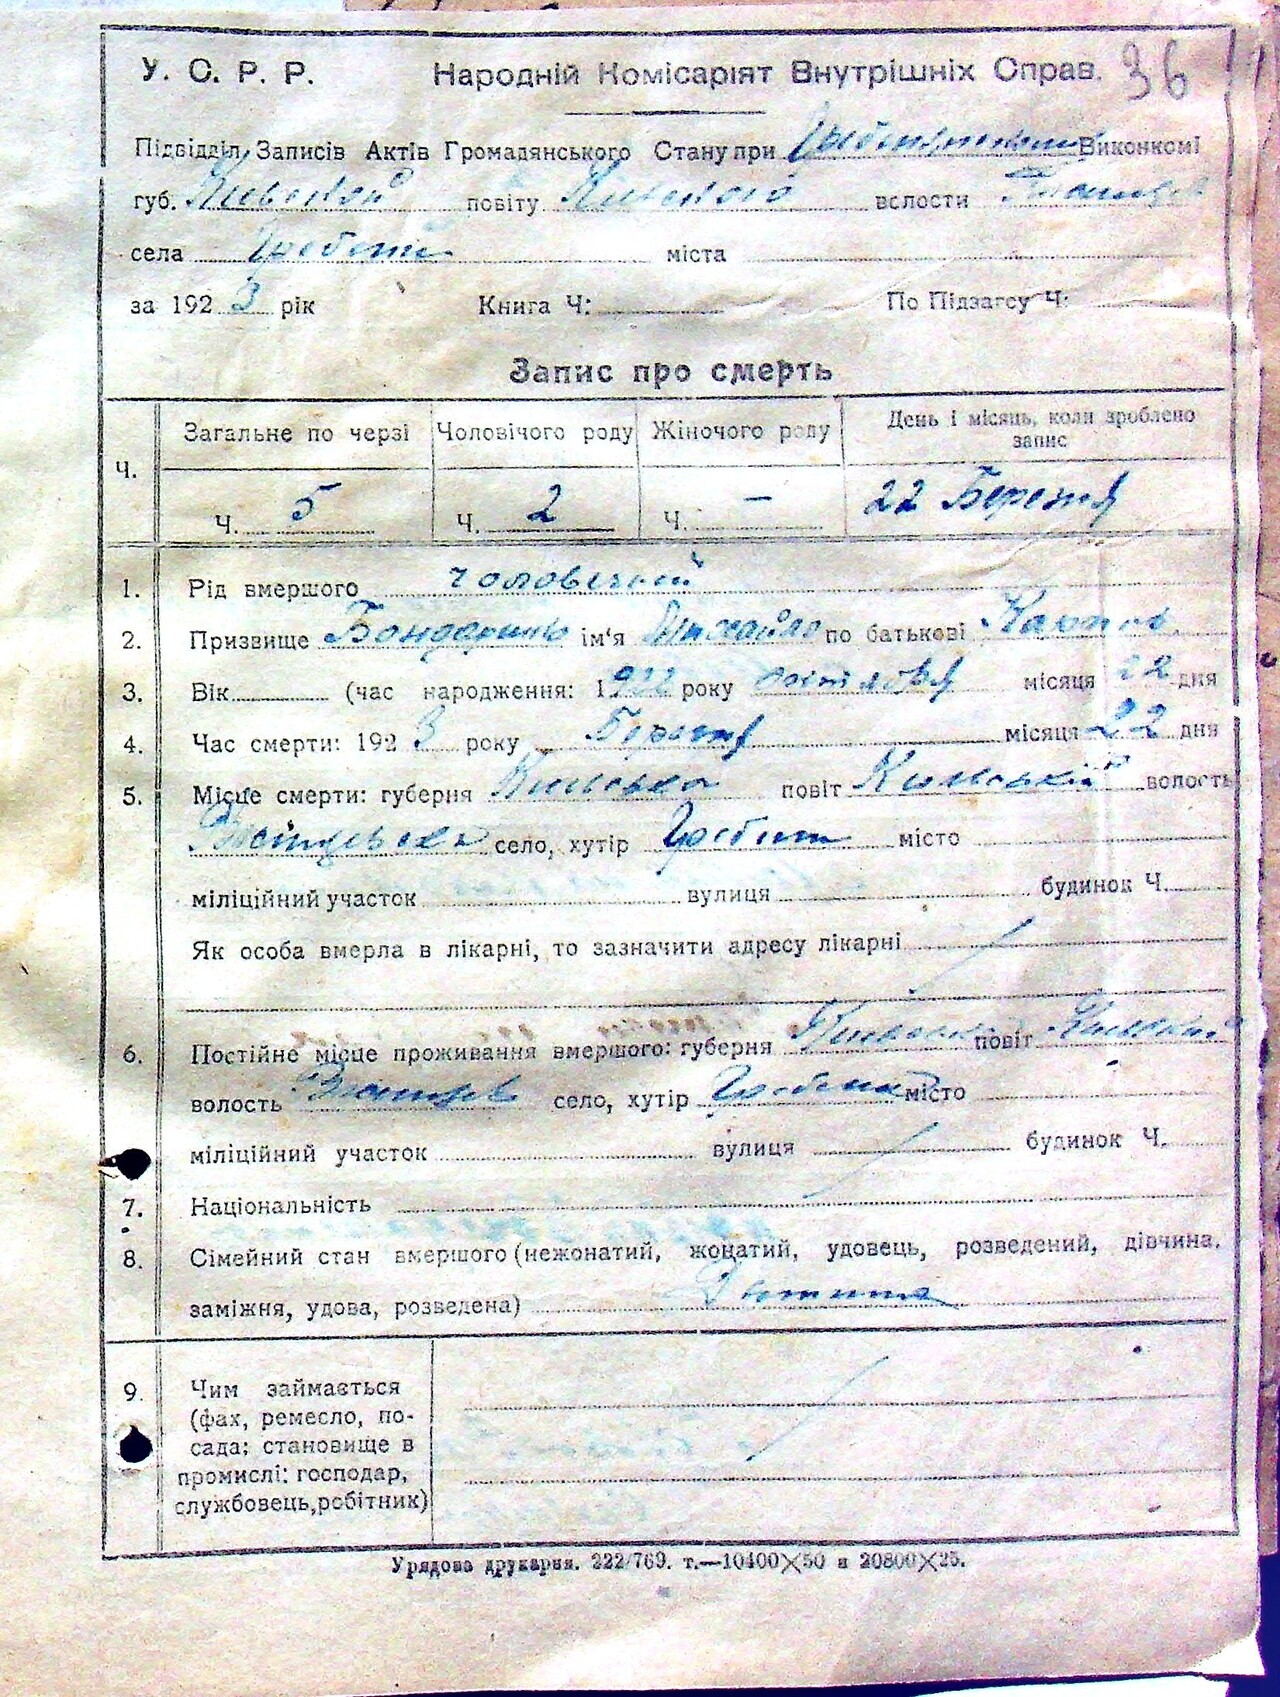 У. С. Р. Р. Народній Комісаріят Внутрішніх Справ. 36
Підвідділ Записів Актів Громадянського Стану при Виконкомі
губ. Киевской повіту Киевского волости
села Гребени міста
за 1923 рік Книга Ч: По Підзагсу Ч:
Запис про смерть
Ч. Загальне по черзі Чоловічого роду Жіночого роду День і місяць, коли зроблено запис
Ч. 5 Ч. 2 Ч. — 22 Березня
1. Рід вмершого чоловечий
2. Призвище Бондаренко ім'я Михайло по батькові
3. Вік (час народження: 1922 року октября місяця 22 дня
4. Час смерти: 1923 року Березня місяця 22 дня
5. Місце смерти: губерня Київська повіт Київський волость
село, хутір Гребени місто
міліційний участок вулиця будинок Ч.
Як особа вмерла в лікарні, то зазначити адресу лікарні
6. Постійне місце проживання вмершого: губерня повіт
волость село, хутір Гребени місто
міліційний участок вулиця будинок Ч.
7. Національність
8. Сімейний стан вмершого (нежонатий, жонатий, удовець, розведений, дівчина,
заміжня, удова, розведена) Дитина
9. Чим займається
(фах, ремесло, по-
сада; становище в
промислі: господар,
службовець, робітник)
Урядова друкарня. 222/769. т.—10400×50 и 20800×25.